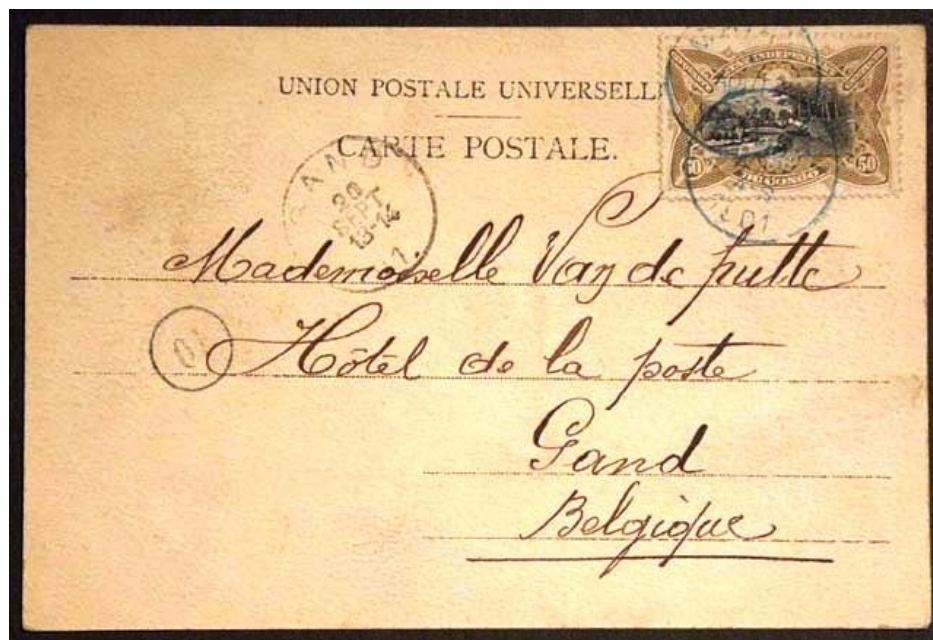 UNION POSTALE UNIVERSELLE
CARTE POSTALE.
50 50
DU CONGO
GAND
20
SEPT
13-14
Mademoiselle Van de putte
10
Hôtel de la poste
Gand
Belgique